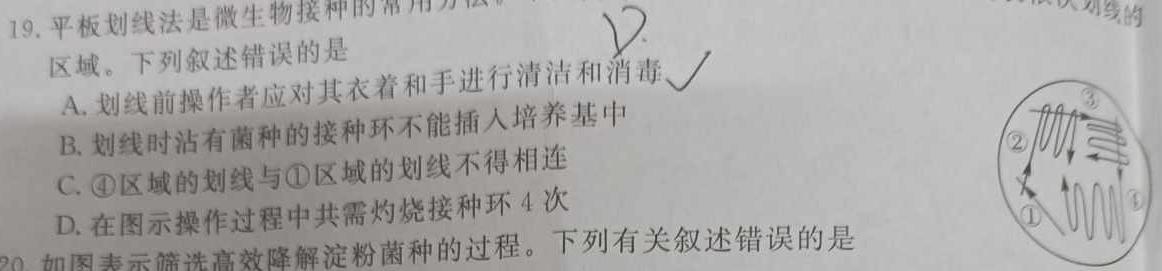 19. 平板划线法是微生物接种的常用方法
划线的
区域。下列叙述错误的是
D.
A. 划线前操作者应对其衣着和手进行清洁和消毒
B. 划线时沾有菌种的接种环不能插入培养基中
C. ④区域的划线与①区域的划线不得相连
D. 在图示操作过程中共需灼烧接种环 4 次
③
②
①
④
20. 如图表示筛选高效降解淀粉菌种的过程。下列有关叙述错误的是